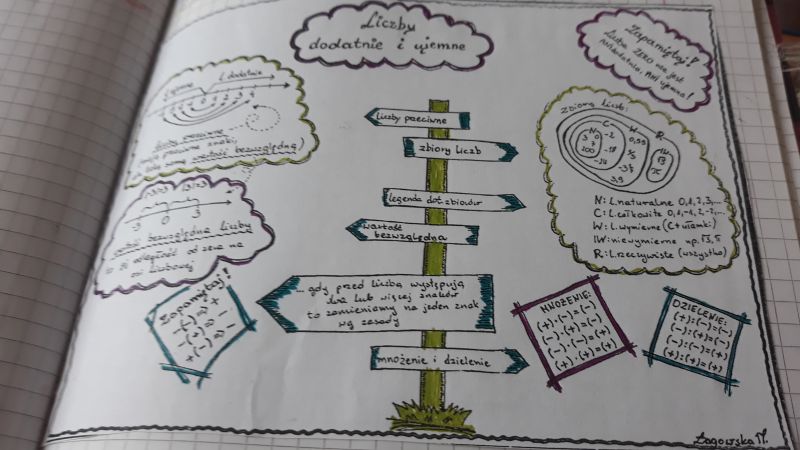 Liczby
dodatnie i ujemne
Zapamiętaj!
Liczba ZERO nie jest
ANI dodatnia, ANI ujemna!
ujemne
dodatnie
Liczby przeciwne
mają przeciwne znaki,
tę samą wartość bezwzględną)
|-3|=3 |3|=3
-3 0 3
wartość bezwzględna liczby
to odległość od zera na
osi liczbowej
Zapamiętaj!
-(-) => +
-(+) => -
+(-) => -
liczby przeciwne
zbiory liczb
legenda dot. zbiorów
wartość
bezwzględna
... gdy przed liczbą występują
dwa lub więcej znaków
to zamieniamy na jeden znak
wg zasady
mnożenie i dzielenie
zbiory liczb:
N C W R
N: l. naturalne 0,1,2,3,...
C: l. całkowite 0,1,-1,2,-2,...
W: l. wymierne (C+ułamki)
IW: niewymierne np. √3, π
R: l. rzeczywiste (wszystko)
MNOŻENIE:
(+)·(-)=(-)
(-)·(+)=(-)
(-)·(-)=(+)
(+)·(+)=(+)
DZIELENIE:
(+):(-)=(-)
(-):(+)=(-)
(-):(-)=(+)
(+):(+)=(+)
Łagowska M.